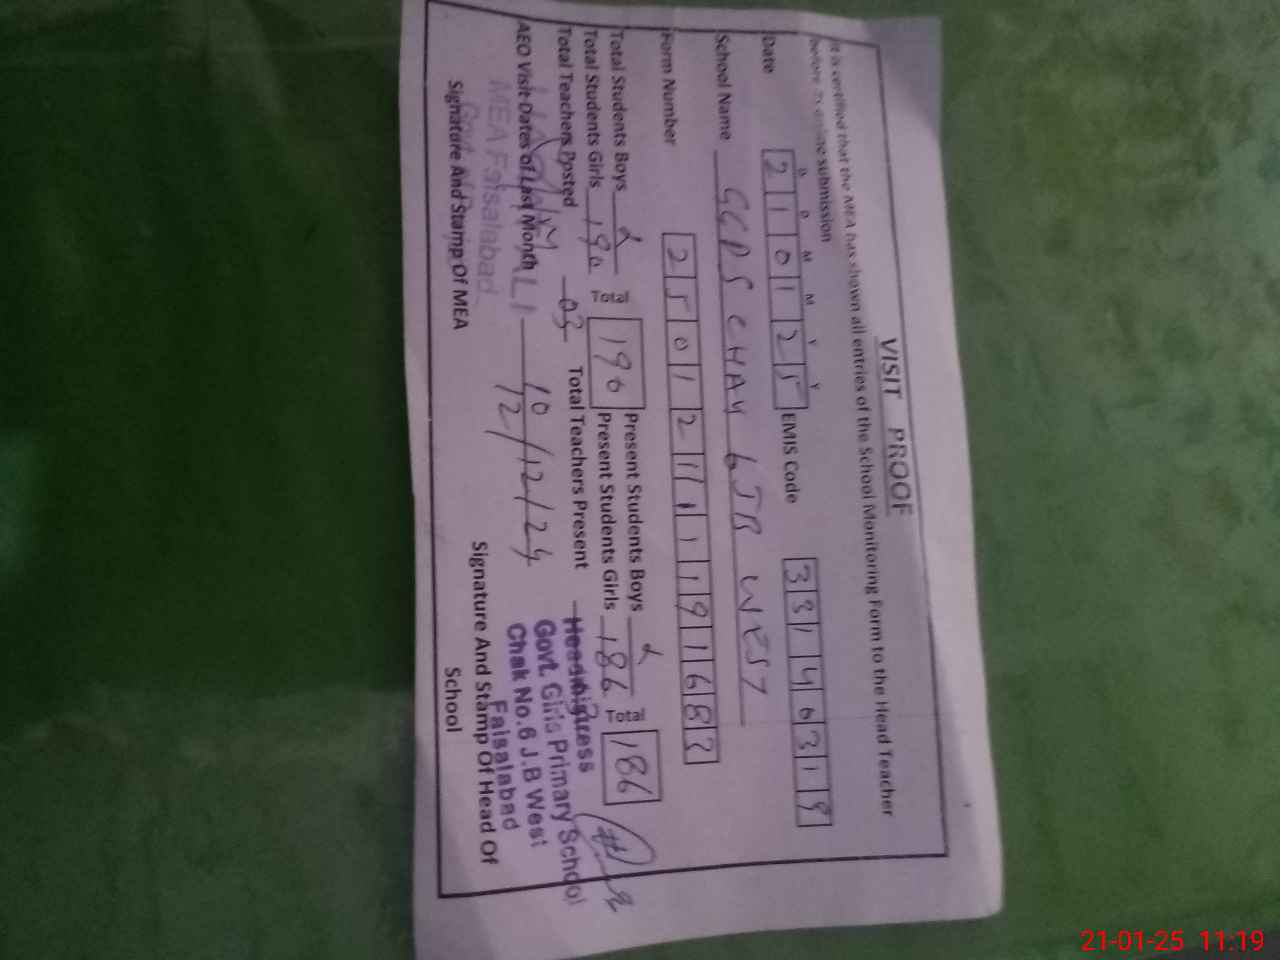 VISIT PROOF
It is certified that the MEA has shown all entries of the School Monitoring Form to the Head Teacher
before its online submission
D D M M Y Y
Date 210125 EMIS Code 33146319
School Name GGPS CHAK 6 JB WEST
Form Number 2501211119168
Total Students Boys 2 Present Students Boys 2
Total Students Girls 190 Total 190 Present Students Girls 186 Total 186
Total Teachers Posted 03 Total Teachers Present
AEO Visit Dates of Last Month 10/12/24
12
MEA Faisalabad
Headmistress
Govt. Girls Primary School
Chak No.6 J.B West
Faisalabad
Signature And Stamp Of MEA
Signature And Stamp Of Head Of
School
21-01-25 11:19